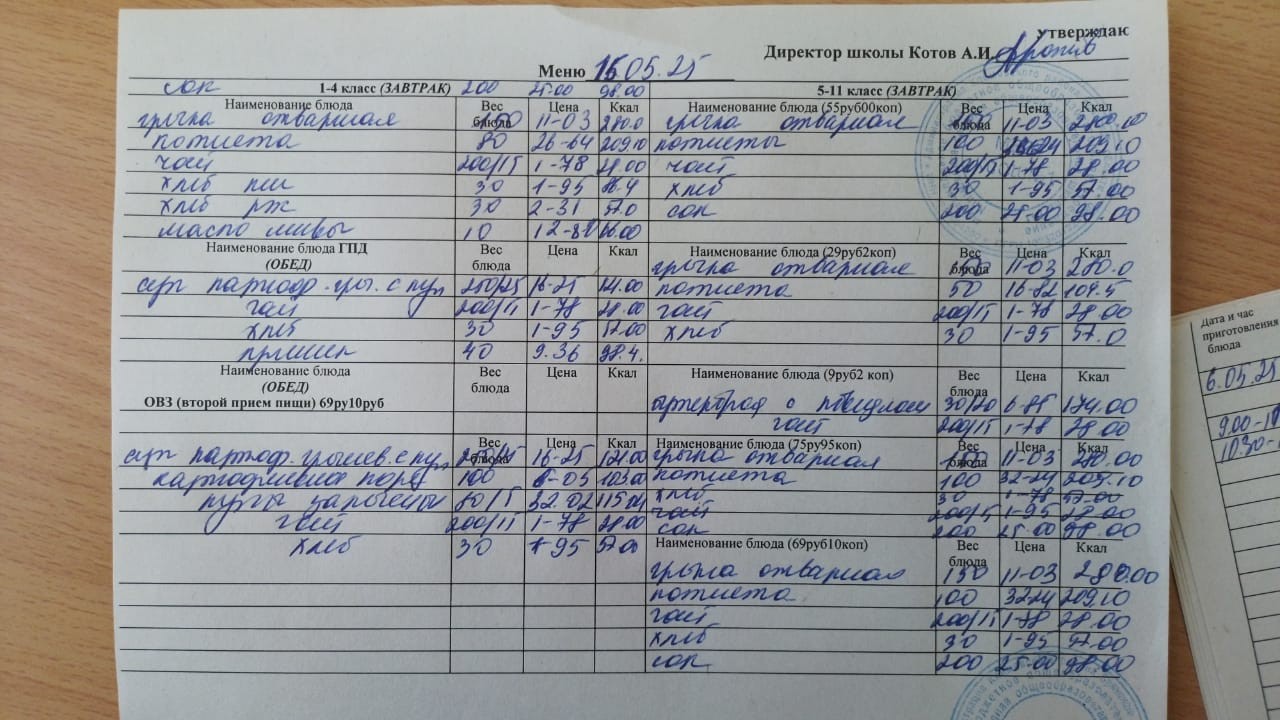 утверждаю
Директор школы Котов А.И.
Меню 15.05.25
сок 1-4 класс (ЗАВТРАК) 200 25.00 98.00 5-11 класс (ЗАВТРАК)
Наименование блюда Вес блюда Цена Ккал Наименование блюда (55руб00коп) Вес блюда Цена Ккал
гречка отварная 11-03 280.0 гречка отварная 11-03 280.10
котлета 80 26-64 209.10 котлеты 100 209.10
чай 200/15 1-78 28.00 чай 200/15 1-78 28.00
хлеб пш 30 1-95 хлеб 30 1-95 57.00
хлеб рж 30 2-31 57.0 сок 200 25-00 98.00
масло сливы 10
Наименование блюда ГПД (ОБЕД) Вес блюда Цена Ккал Наименование блюда (29руб2коп) Вес блюда Цена Ккал
гречка отварная 11-03 280.0
суп картоф. греч. с кур 250/25 16-25 котлета 50 16-82 104.5
чай 200/15 1-78 28.00 чай 200/15 1-78 28.00
хлеб 30 1-95 57.00 хлеб 30 1-95 57.0
пряник 40 9.36 98.4
Наименование блюда (ОБЕД) Вес блюда Цена Ккал Наименование блюда (9руб2 коп) Вес блюда Цена Ккал
ОВЗ (второй прием пищи) 69ру10руб бутерброд с повидлом 30/20 6-85 174.00
чай 200/15 1-78 28.00
Вес блюда Цена Ккал Наименование блюда (75ру95коп) Вес блюда Цена Ккал
суп картоф. с кур 16-25 гречка отварная 11-03 280.00
картофельное пюре 100 котлета 100 32-24 209.10
80/5 32.02 хлеб 30 1-78 57.00
чай 200/15 1-78 28.00 чай 200/15 1-95 28.00
сок 200 25-00 98.00
хлеб 30 1-95 57.00 Наименование блюда (69руб10коп) Вес блюда Цена Ккал
гречка отварная 150 11-03 280.00
котлета 100 32-24 209.10
чай 200/15 1-78 28.00
хлеб 30 1-95 57.00
сок 200 25-00 98.00
Дата и час
приготовления
блюда
6.05.25
9.00-10
10.30-